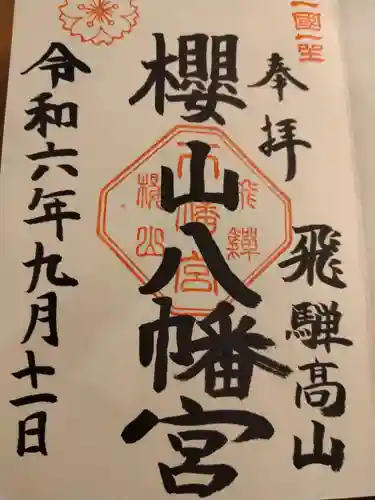 一國一社
奉拝
飛騨高山
櫻山八幡宮
八幡宮
飛騨
櫻山
令和六年九月十一日